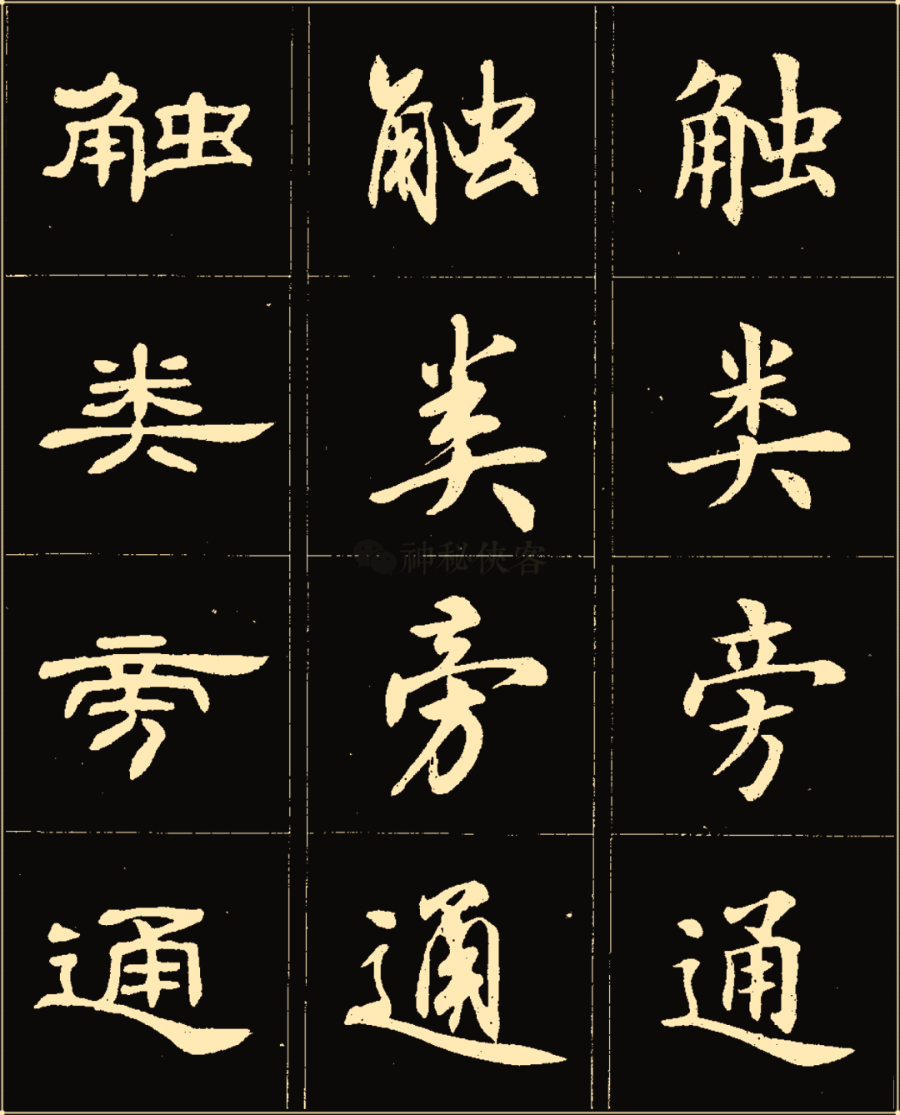 触 触 触
类 类 类
旁 旁 旁
通 通 通
神秘侠客